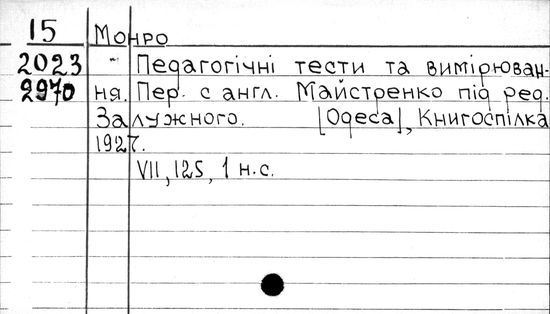 15 Монро
2023 " Педагогічні тести та вимірюван-
2970 ня. Пер. с англ. Майстренко під ред.
Залужного. [Одеса], Книгоспілка
1927.
VII, 125, 1 н.с.